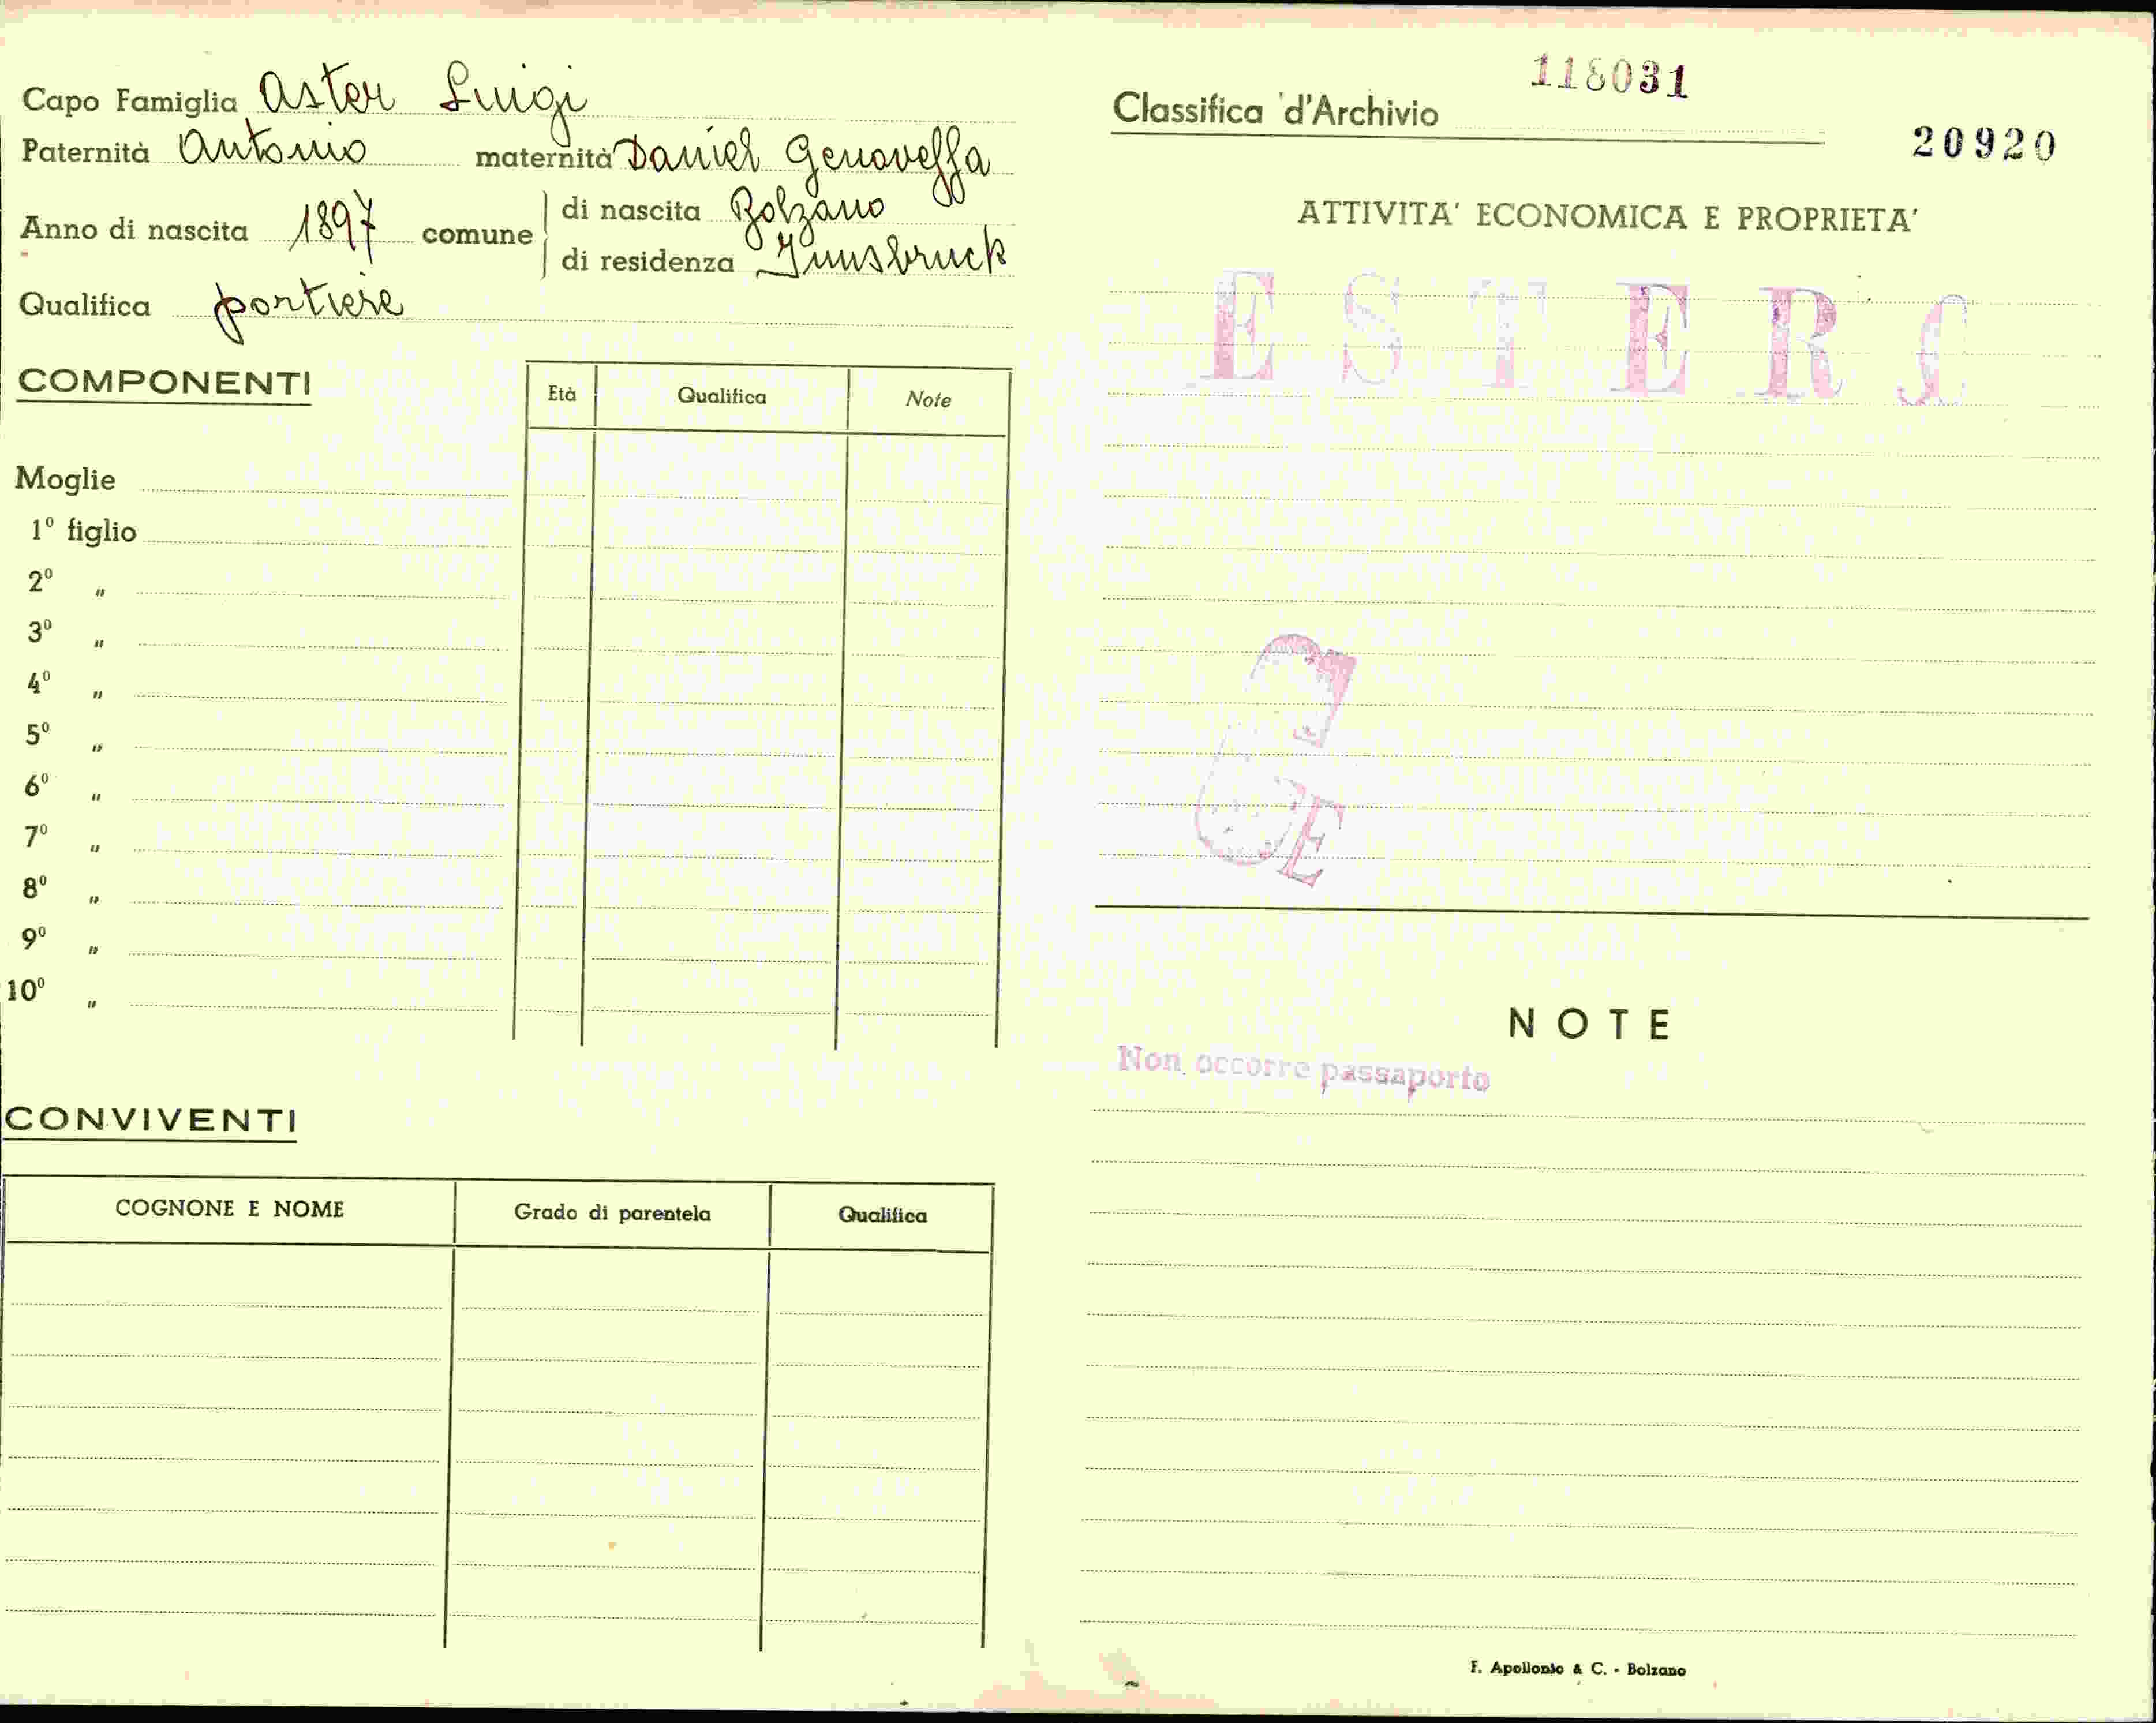 Capo Famiglia Aster Luigi
Paternità Antonio maternità Daniel Genoveffa
Anno di nascita 1897 comune
di nascita Bolzano
di residenza Innsbruck
Qualifica portiere
COMPONENTI
Età Qualifica Note
Moglie
1º figlio
2º "
3º "
4º "
5º "
6º "
7º "
8º "
9º "
10º "
CONVIVENTI
COGNONE E NOME Grado di parentela Qualifica
118031
Classifica d'Archivio
20920
ATTIVITA' ECONOMICA E PROPRIETA'
ESTERI
NOTE
Non occorre passaporto
F. Apollonio & C. - Bolzano